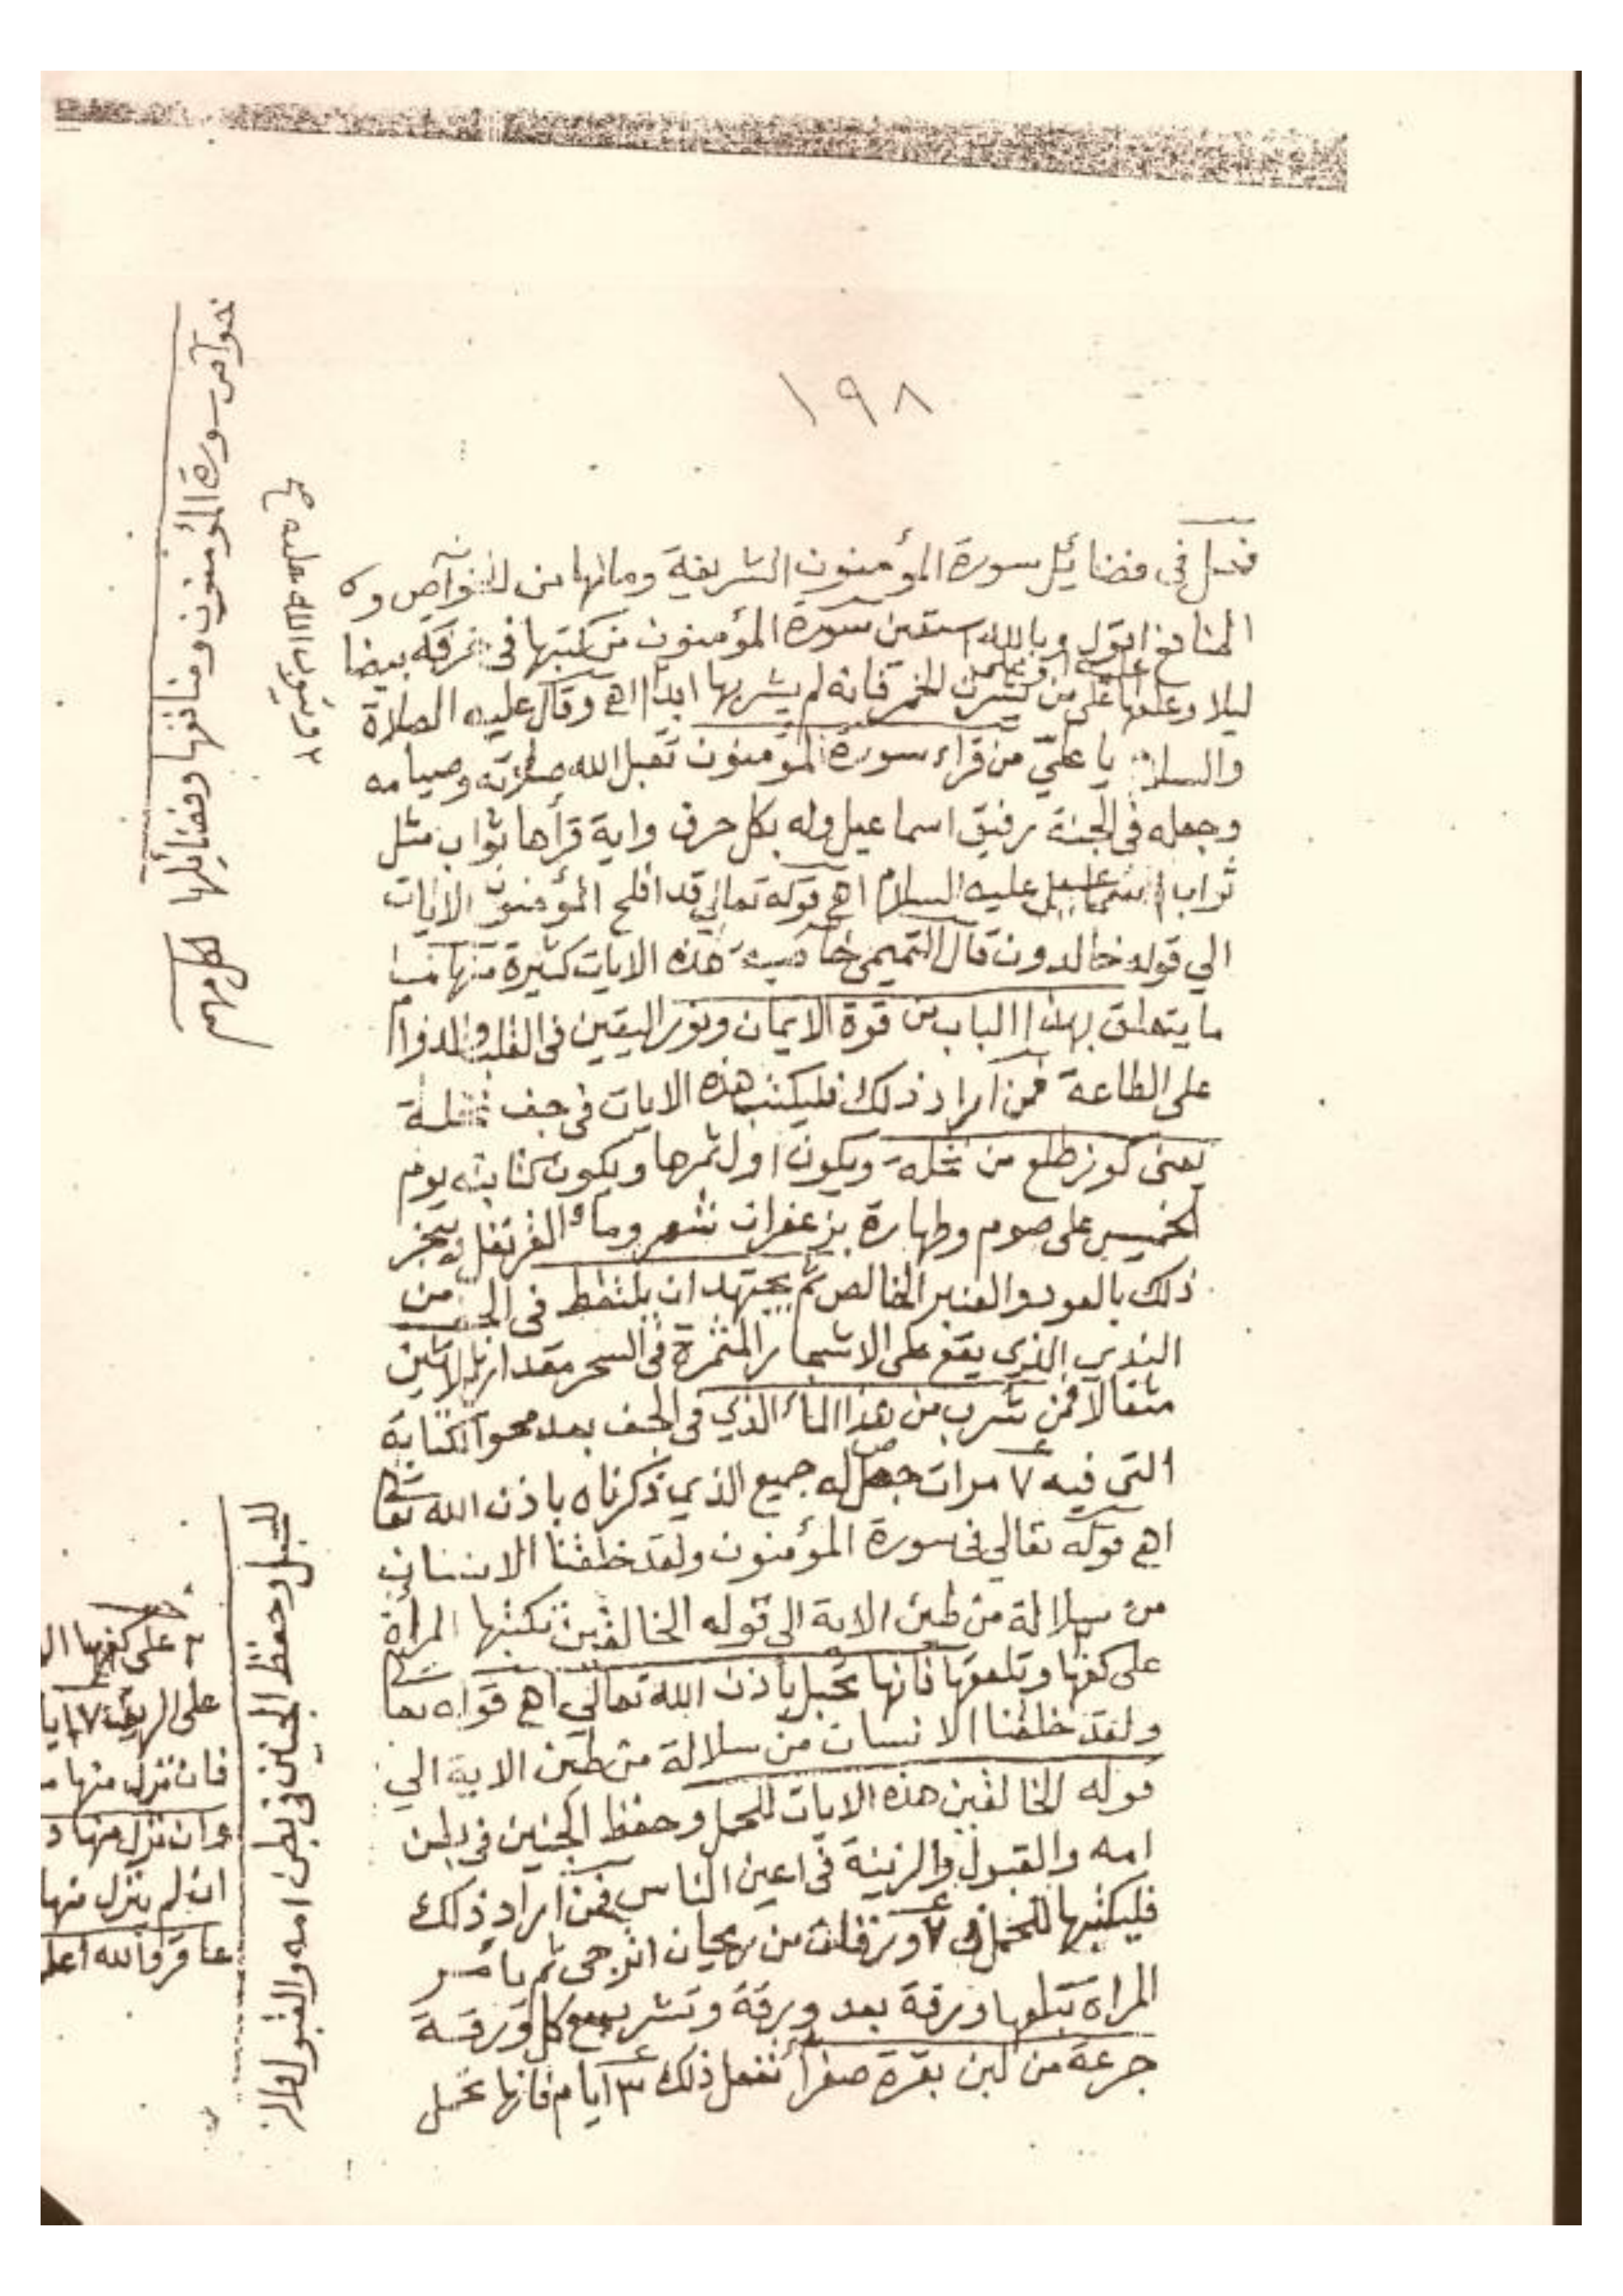 ١٩٨
فصل في فضائل سورة المؤمنون الشريفة ومالها من الخوآص و
المنافع اقول وبالله استعين سورة المؤمنون من كتبها في خرقة بيضا
ليلا وعلقها على من يشرب الخمر فانه لم يشربها ابدا اهـ وقال عليه الصلاة
والسلام يا عليّ من قراء سورة المؤمنون تقبل الله صلاته وصيامه
وجعله في الجنة رفيق اسماعيل وله بكل حرف واية قرأها ثواب مثل
ثواب اسماعيل عليه السلام اهـ قوله تعالي قد افلح المؤمنون الايات
الي قوله خالدون قال التميمي خاصية هذه الايات كثيرة منها
ما يتعلق بهذا الباب من قوة الايمان ونور اليقين في القلب والدوام
على الطاعة فمن اراد ذلك فليكتب هذه الايات في جف نخلة
يعني كوز طلع من نخلة ويكون اول ثمرها ويكون كتابته يوم
الخميس على صوم وطهارة بزعفران شعر وماء القرنفل ويبخر
ذلك بالعود والعنبر الخالص ثم يجتهد ان يلتقط في الجف من
الندي الذي يقع على الاشجار المثمرة في السحر مقدار ثلاثين
مثقالا فمن شرب من هذا الماء الذي في الجف بعد محو الكتابة
التي فيه ٧ مرات حصل له جميع الذي ذكرناه باذن الله تعا
اهـ قوله تعالي في سورة المؤمنون ولقد خلقنا الانسان
من سلالة من طين الاية الى قوله الخالقين تكتبها المراة
على كفها وتلعقها فانها تحبل باذن الله تعالي اهـ قوله تعا
ولقد خلقنا الانسان من سلالة من طين الاية الي
قوله الخالقين هذه الايات للحمل وحفظ الجنين في بطن
امه والقبول والزينة في اعين الناس فمن اراد ذلك
فليكتبها للحمل في ٧ ورقات من ريحان اترجي ثم يأمر
المراة تبلعها ورقة بعد ورقة وتشرب مع كل ورقة
جرعة من لبن بقرة صفراء تفعل ذلك ٣ ايام فانها تحمل
خوآص سورة المؤمنون ومنافعها وفضائلها
٢ ويتوب الله عليه صح
للحبل وحفظ الجنين في بطن امه والقبول والز
على كفها ال
على الريق ٧ ايا
فان نزل منها م
وان نزل منها د
ان لم ينزل منها
عاقر والله اعلم